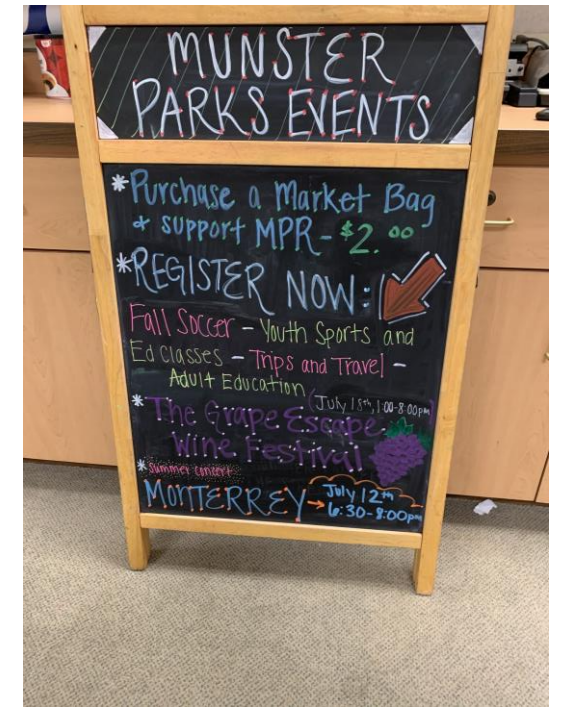 MUNSTER
PARKS EVENTS
*Purchase a Market Bag
& support MPR-$2.00
*REGISTER NOW:
Fall Soccer - Youth Sports and
Ed Classes - Trips and Travel -
Adult Education
(July 18th, 1:00-8:00pm)
*The Grape Escape
Wine Festival
*summer concert
MONTERREY→
July 12th
6:30-8:00pm